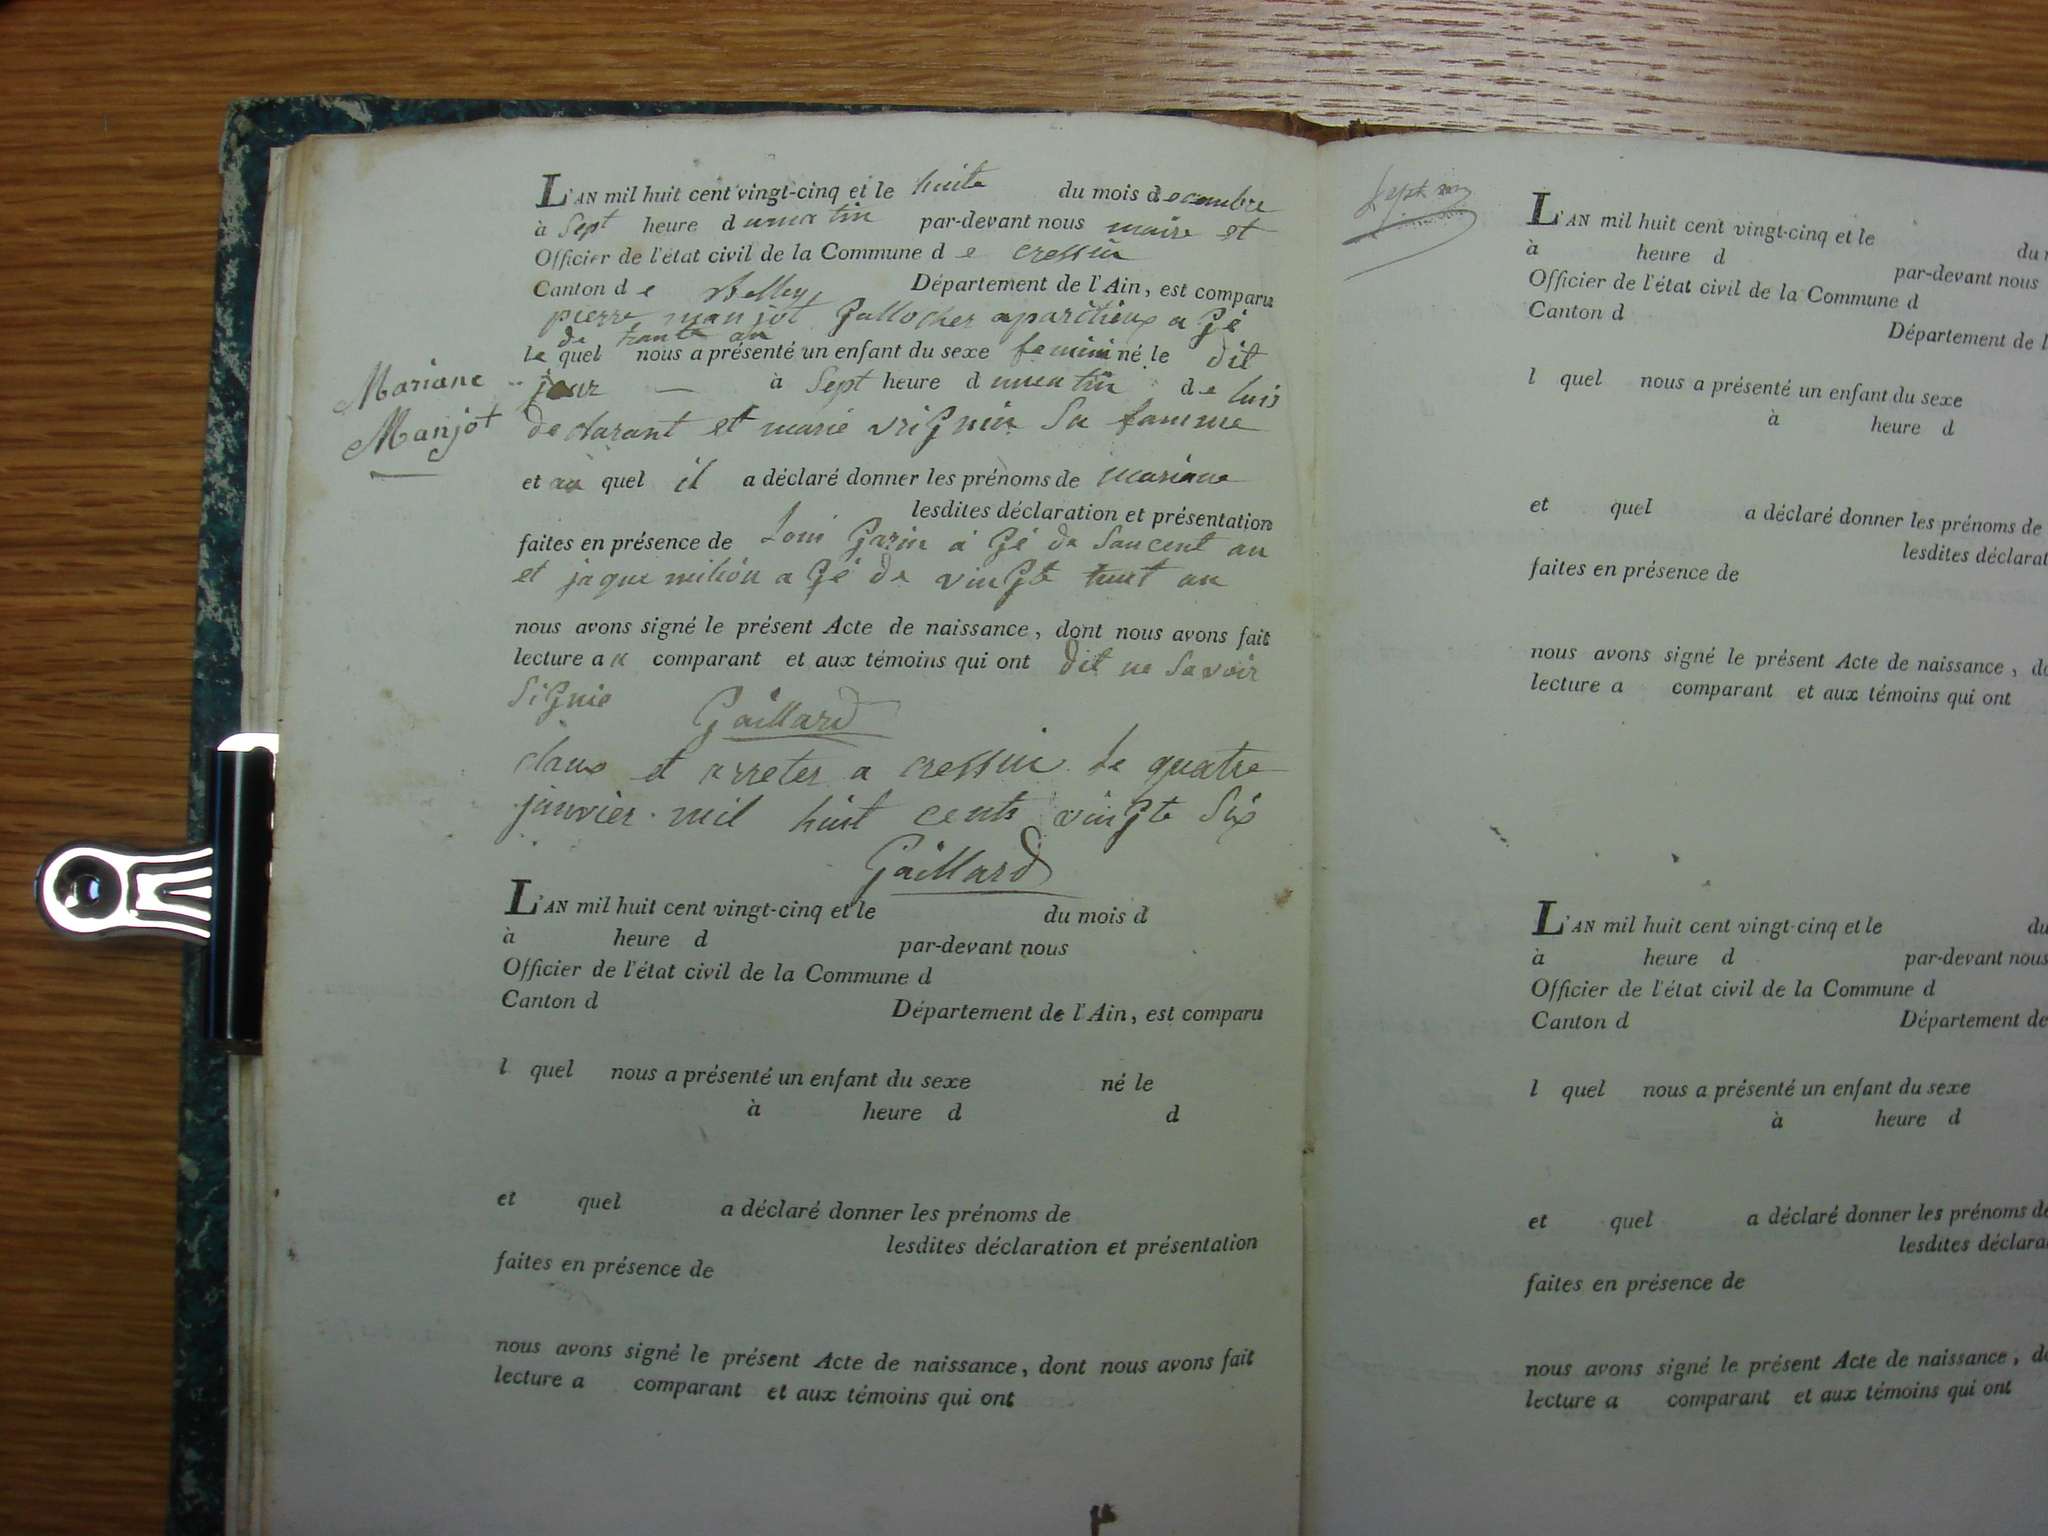 L'AN mil huit cent vingt-cinq et le huite du mois decembre
à Sept heure dumatin par-devant nous maire et
Officier de l'état civil de la Commune de cressin
Canton de Belley Département de l'Ain, est comparu
pierre manjot aparctien a Gé
de trante an
le quel nous a présenté un enfant du sexe feminin né le dit
Mariane jour — à Sept heure dumatin de luis
Manjot declarant et marie vriGnin Sa famme
et au quel il a déclaré donner les prénoms de mariane
lesdites déclaration et présentation
faites en présence de Loui Garin a Gé de Saucent an
et jaque milion a Gé de vinGte huit an
nous avons signé le présent Acte de naissance, dont nous avons fait
lecture au comparant et aux témoins qui ont dit ne Savoir
SiGnie Gaillard
claux et arreter a cressin le quatre
janvier mil huit cents vinGte Six
Gaillard
L'AN mil huit cent vingt-cinq et le du mois d
à heure d par-devant nous
Officier de l'état civil de la Commune d
Canton d Département de l'Ain, est comparu
l quel nous a présenté un enfant du sexe né le
à heure d d
et quel a déclaré donner les prénoms de
lesdites déclaration et présentation
faites en présence de
nous avons signé le présent Acte de naissance, dont nous avons fait
lecture a comparant et aux témoins qui ont
L'AN mil huit cent vingt-cinq et le du
à heure d par-devant nous
Officier de l'état civil de la Commune d
Canton d Département de l
l quel nous a présenté un enfant du sexe
à heure d
et quel a déclaré donner les prénoms de
lesdites déclarat
faites en présence de
nous avons signé le présent Acte de naissance, do
lecture a comparant et aux témoins qui ont
L'AN mil huit cent vingt-cinq et le du
à heure d par-devant nous
Officier de l'état civil de la Commune d
Canton d Département de
l quel nous a présenté un enfant du sexe
à heure d
et quel a déclaré donner les prénoms de
lesdites déclara
faites en présence de
nous avons signé le présent Acte de naissance, do
lecture a comparant et aux témoins qui ont